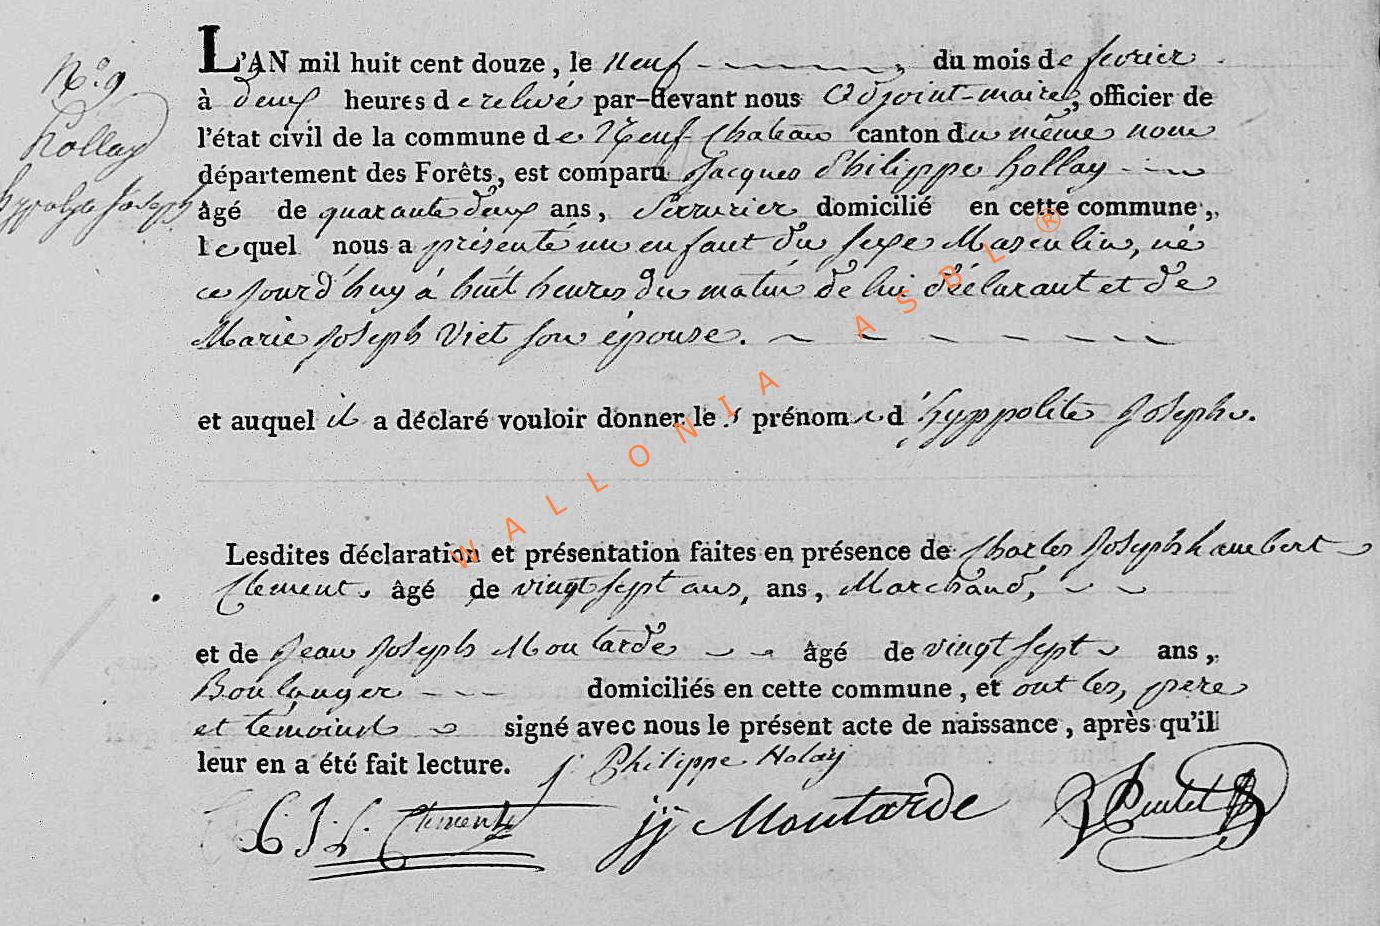 N.o 9
hollay
hyppolyte Joseph
L'AN mil huit cent douze, le neuf du mois de fevrier
à deux heures de relevé par-devant nous Adjoint-maire, officier de
l'état civil de la commune de Neuf-Chateau canton du même nom
département des Forêts, est comparu Jacques Philippe hollay
âgé de quarante deux ans, Serrurier domicilié en cette commune,
lequel nous a présenté un enfant du sexe Masculin, né
ce jourd'huy à huit heures du matin de lui déclarant et de
Marie Joseph Viet son épouse.
et auquel il a déclaré vouloir donner les prénoms d'hyppolite Joseph.
Lesdites déclaration et présentation faites en présence de Charles Joseph Lambert
Clement âgé de vingt sept ans, ans, Marchand,
et de Jean Joseph Moutarde âgé de vingt sept ans,
Boulanger domiciliés en cette commune, et ont les, pere
et témoins signé avec nous le présent acte de naissance, après qu'il
leur en a été fait lecture. j. Philippe Holay
C. J. L. Clement jj Moutarde
WALLONIA ASBL ®